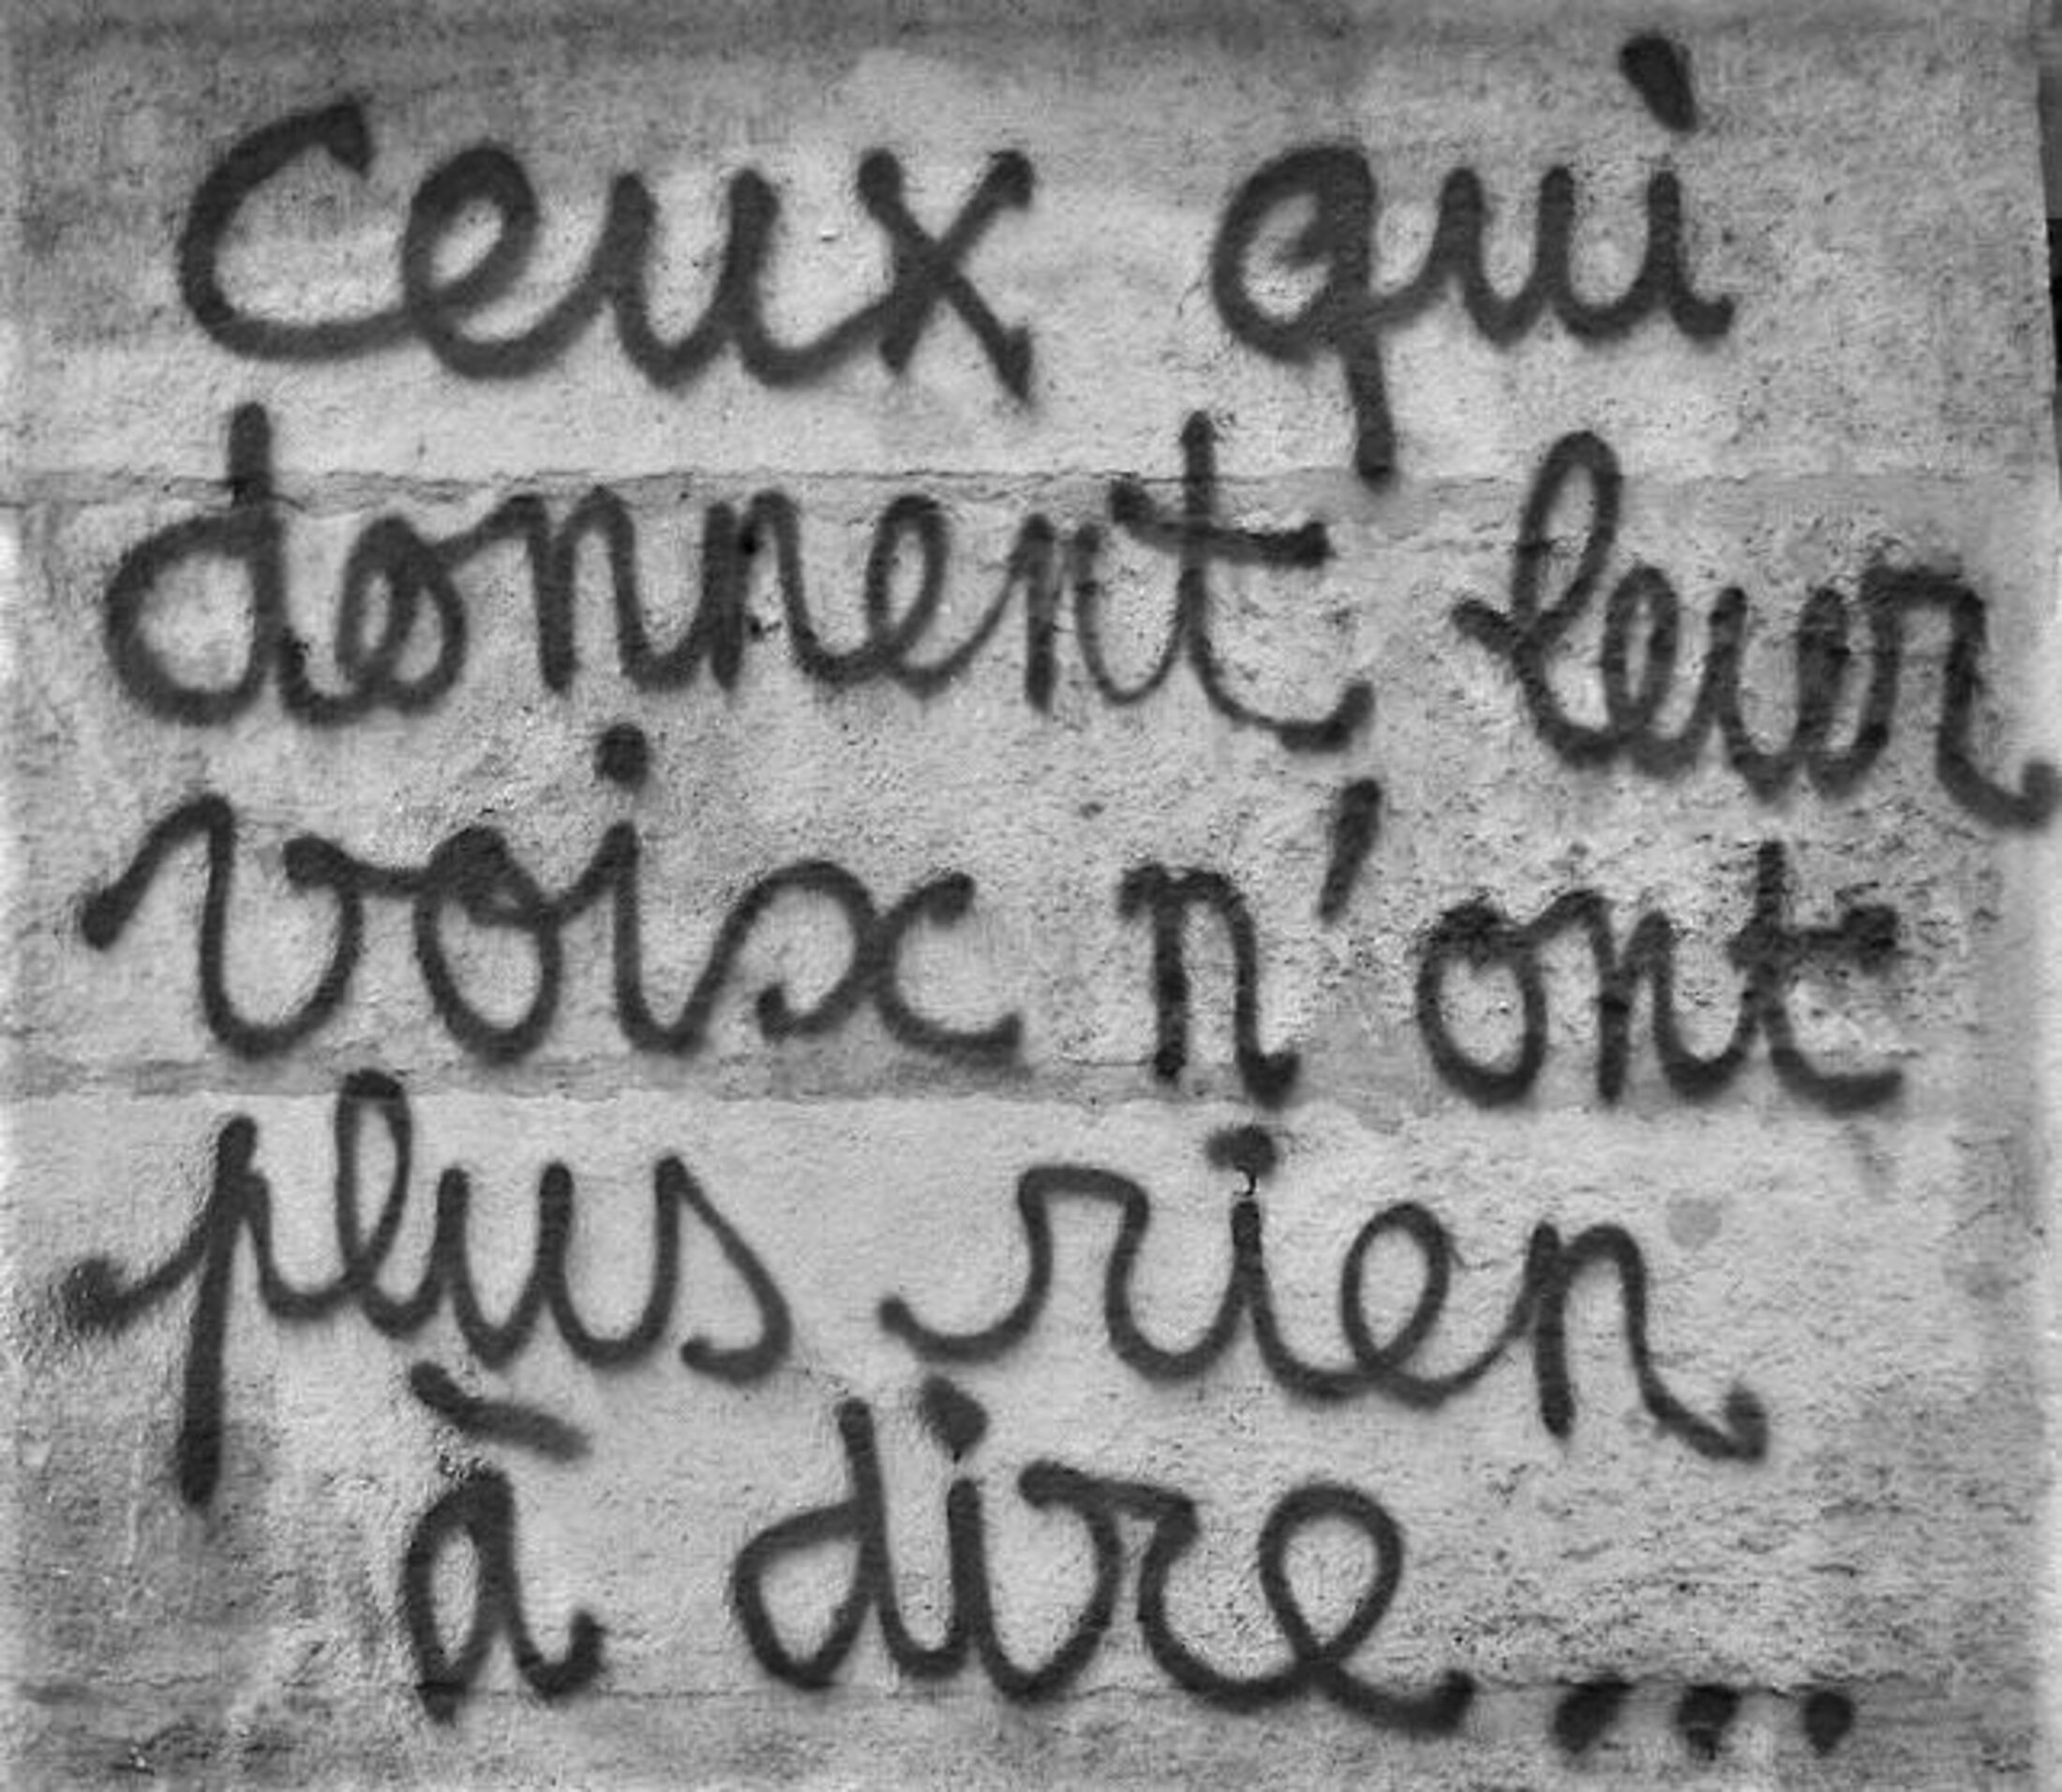 Ceux qui
donnent leur
voix n'ont
plus rien
à dire...